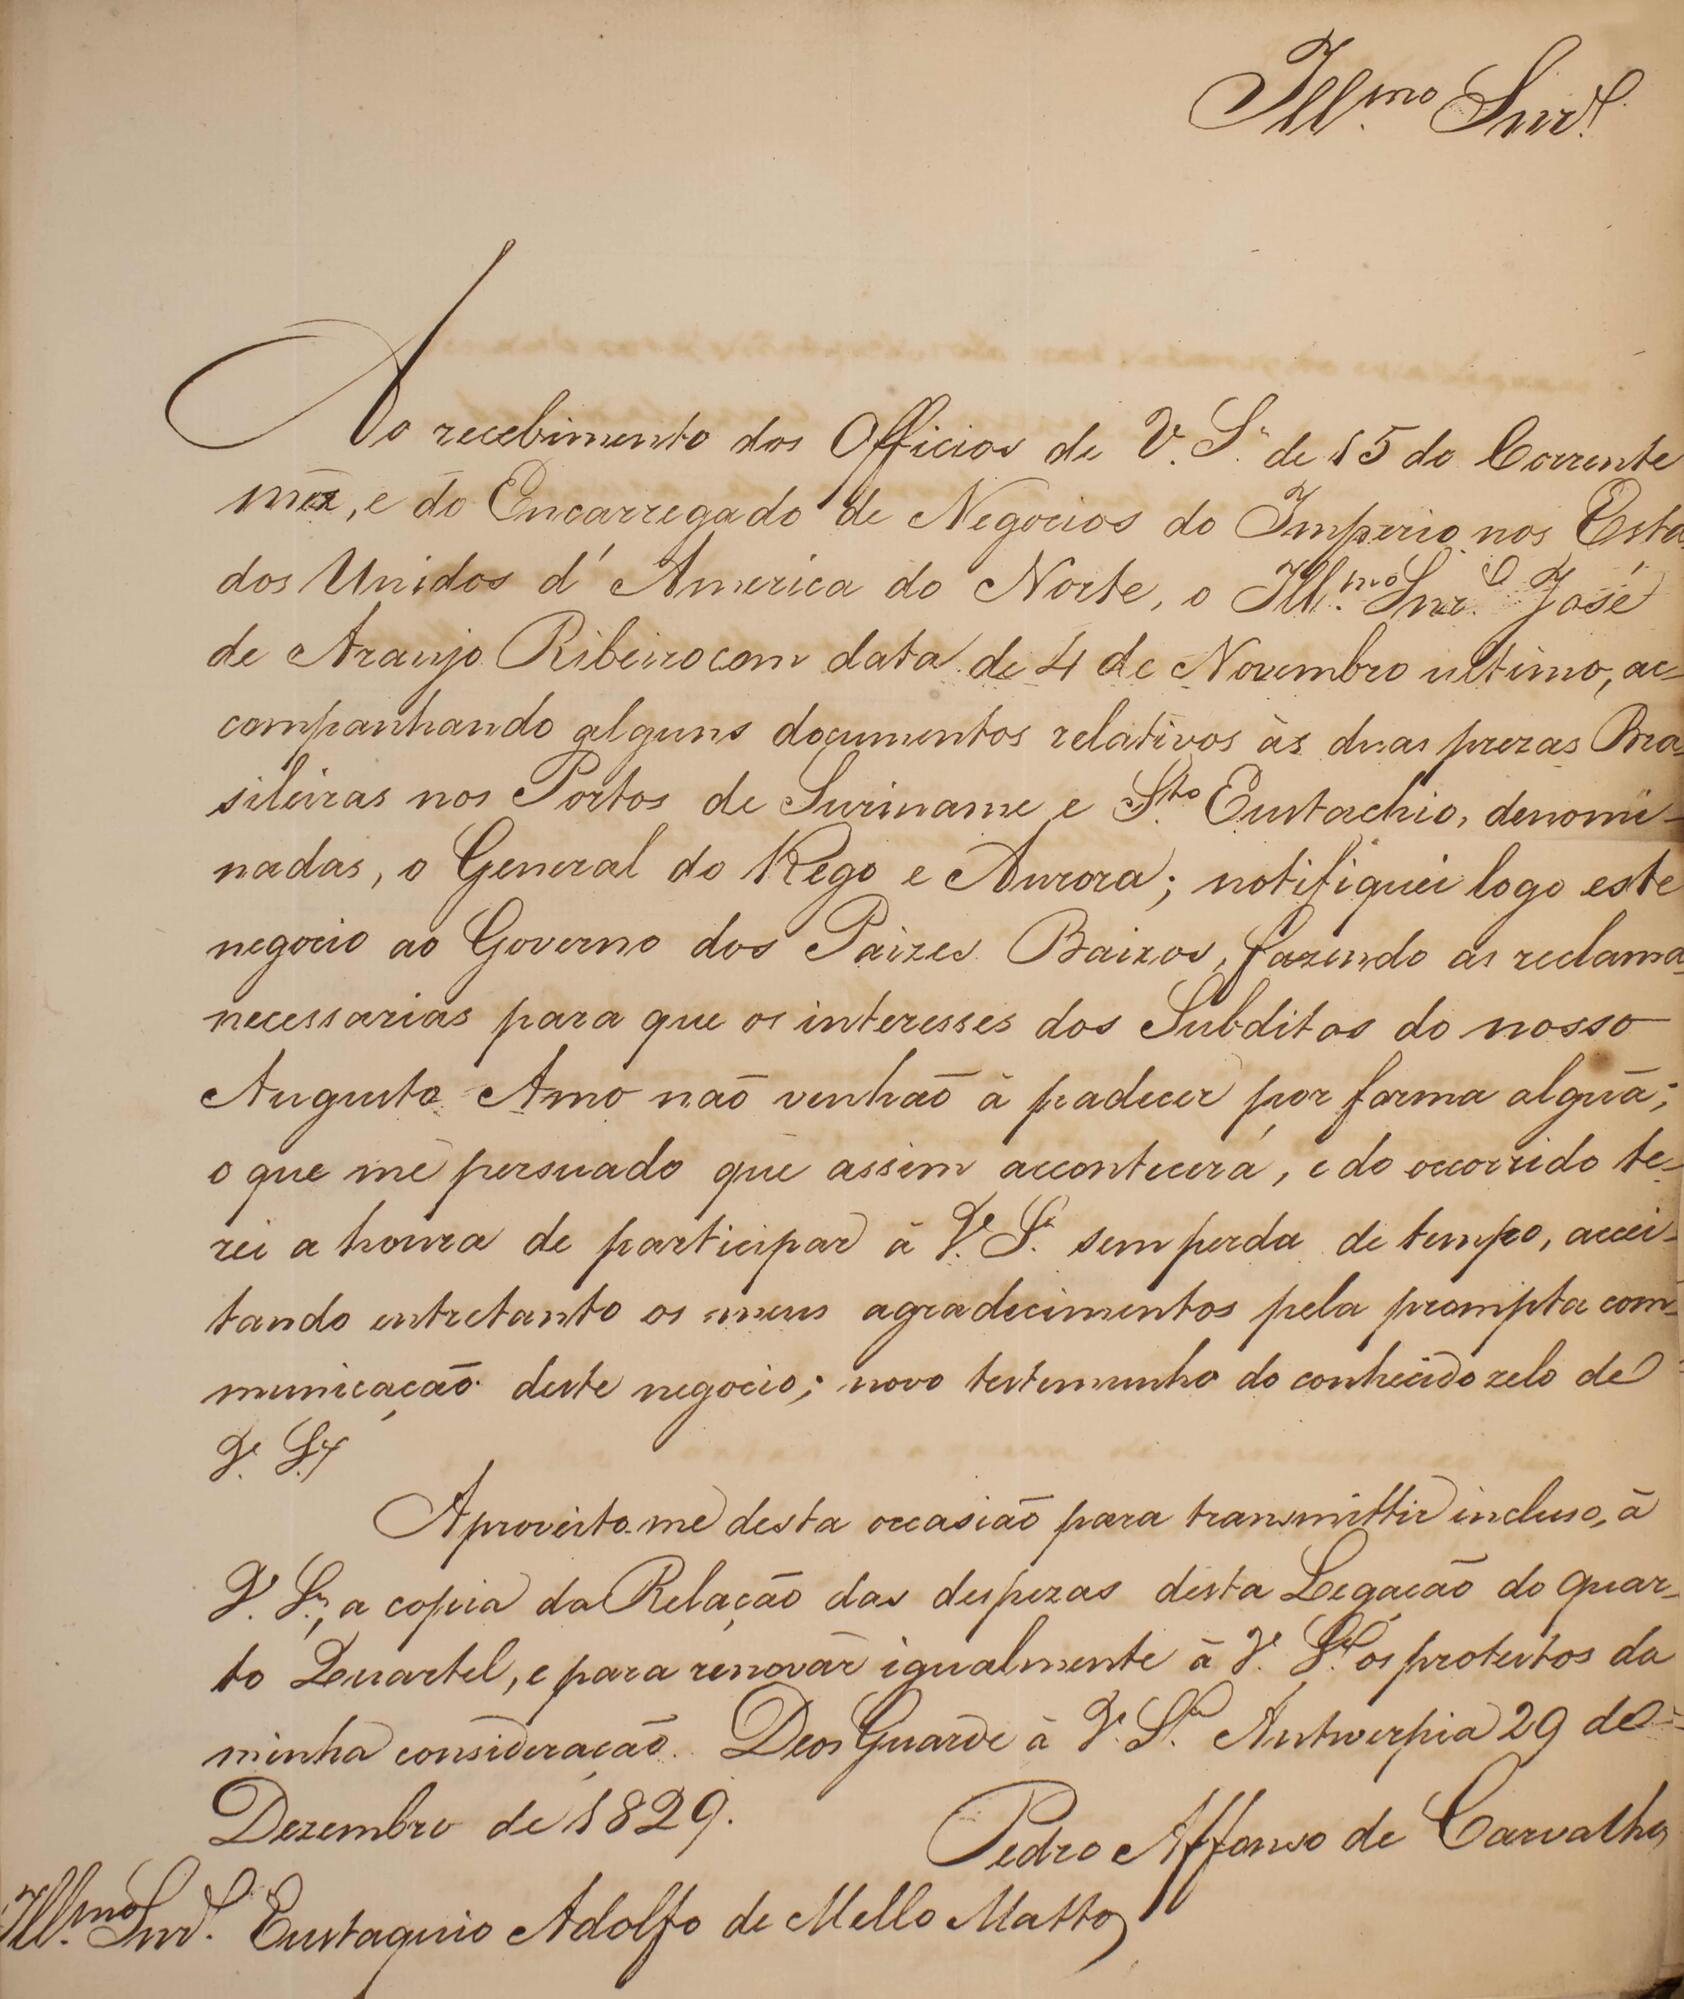 Ill.mo Snr.
Ao recebimento dos Officios de V. S.ª de 15 do Corrente
mez, e do Encarregado de Negocios do Imperio nos Esta
dos Unidos d'America do Norte, o Ill.mo Snr. José
de Araujo Ribeiro com data de 4 de Novembro ultimo, ac-
companhando alguns documentos relativos às duas prezas Bra-
sileiras nos Portos de Suriname e S.to Eustachio, denomi-
nadas, o General do Rego e Aurora; notifiquei logo este
negocio ao Governo dos Paizes Baixos, fazendo as reclama
necessarias para que os interesses dos Subditos do nosso
Augusto Amo não venhão à padecer por forma alguã;
o que me persuado que assim accontecerá, e do occorrido te-
rei a honra de participar à V. S.ª sem perda de tempo, accei-
tando entretanto os meus agradecimentos pela prompta com-
municação deste negocio; novo testemunho do conhecido zelo de
V. S.ª
Aproveito-me desta occasião para transmittir incluso, à
V. S.ª, a copia da Relação das despezas desta Legação do quar-
to Quartel, e para renovar igualmente à V. S.ª os protestos da
minha consideração. Deos Guarde à V. S.ª Antwerpia 29 de
Dezembro de 1829.
Pedro Affonso de Carvalho
Ill.mo Snr. Eustaquio Adolfo de Mello Mattos